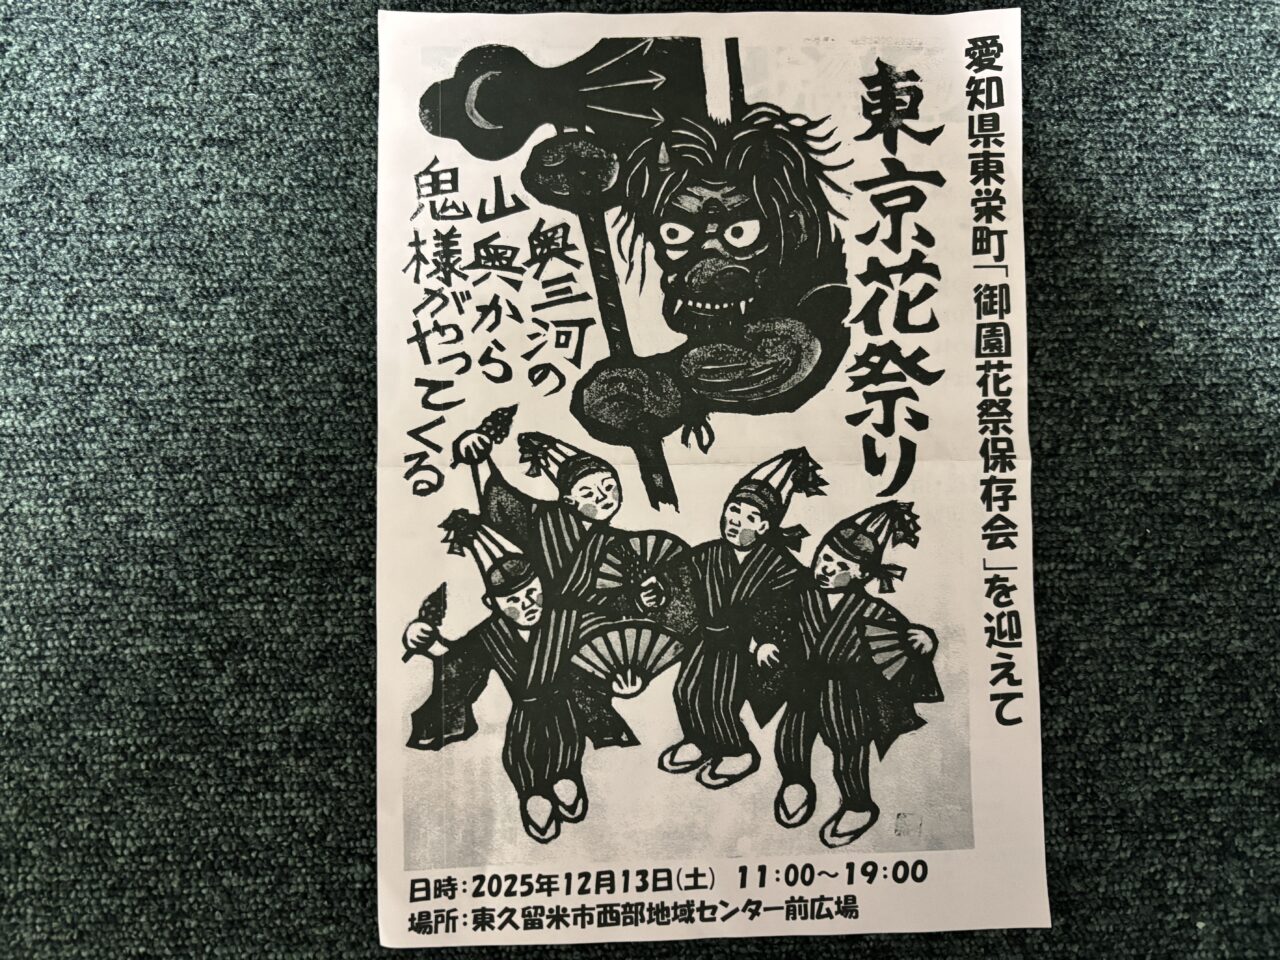 愛知県東栄町「御園花祭保存会」を迎えて
東京花祭り
奥三河の
山奥から
鬼様がやってくる
日時：2025年12月13日(土) 11:00～19:00
場所：東久留米市西部地域センター前広場